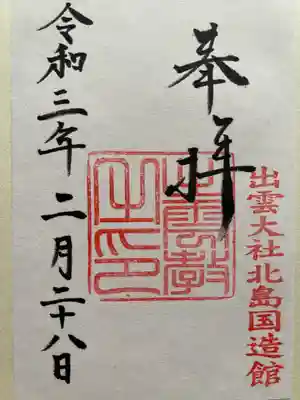 奉拝
出雲大社北島国造館
出雲教之印
令和三年二月二十八日